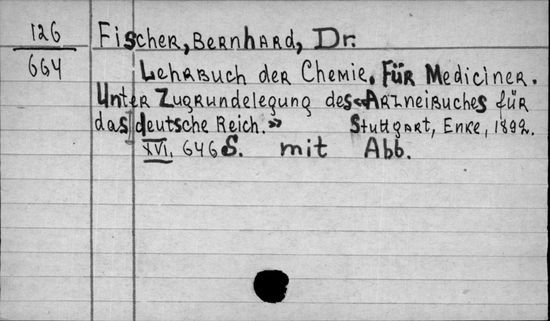 126
664
Fischer, Bernhard, Dr.
Lehrbuch der Chemie. Für Mediciner.
Unter Zugrundelegung des «Arzneibuches für
das deutsche Reich.» Stuttgart, Enke, 1892.
XVI, 646 S. mit Abb.